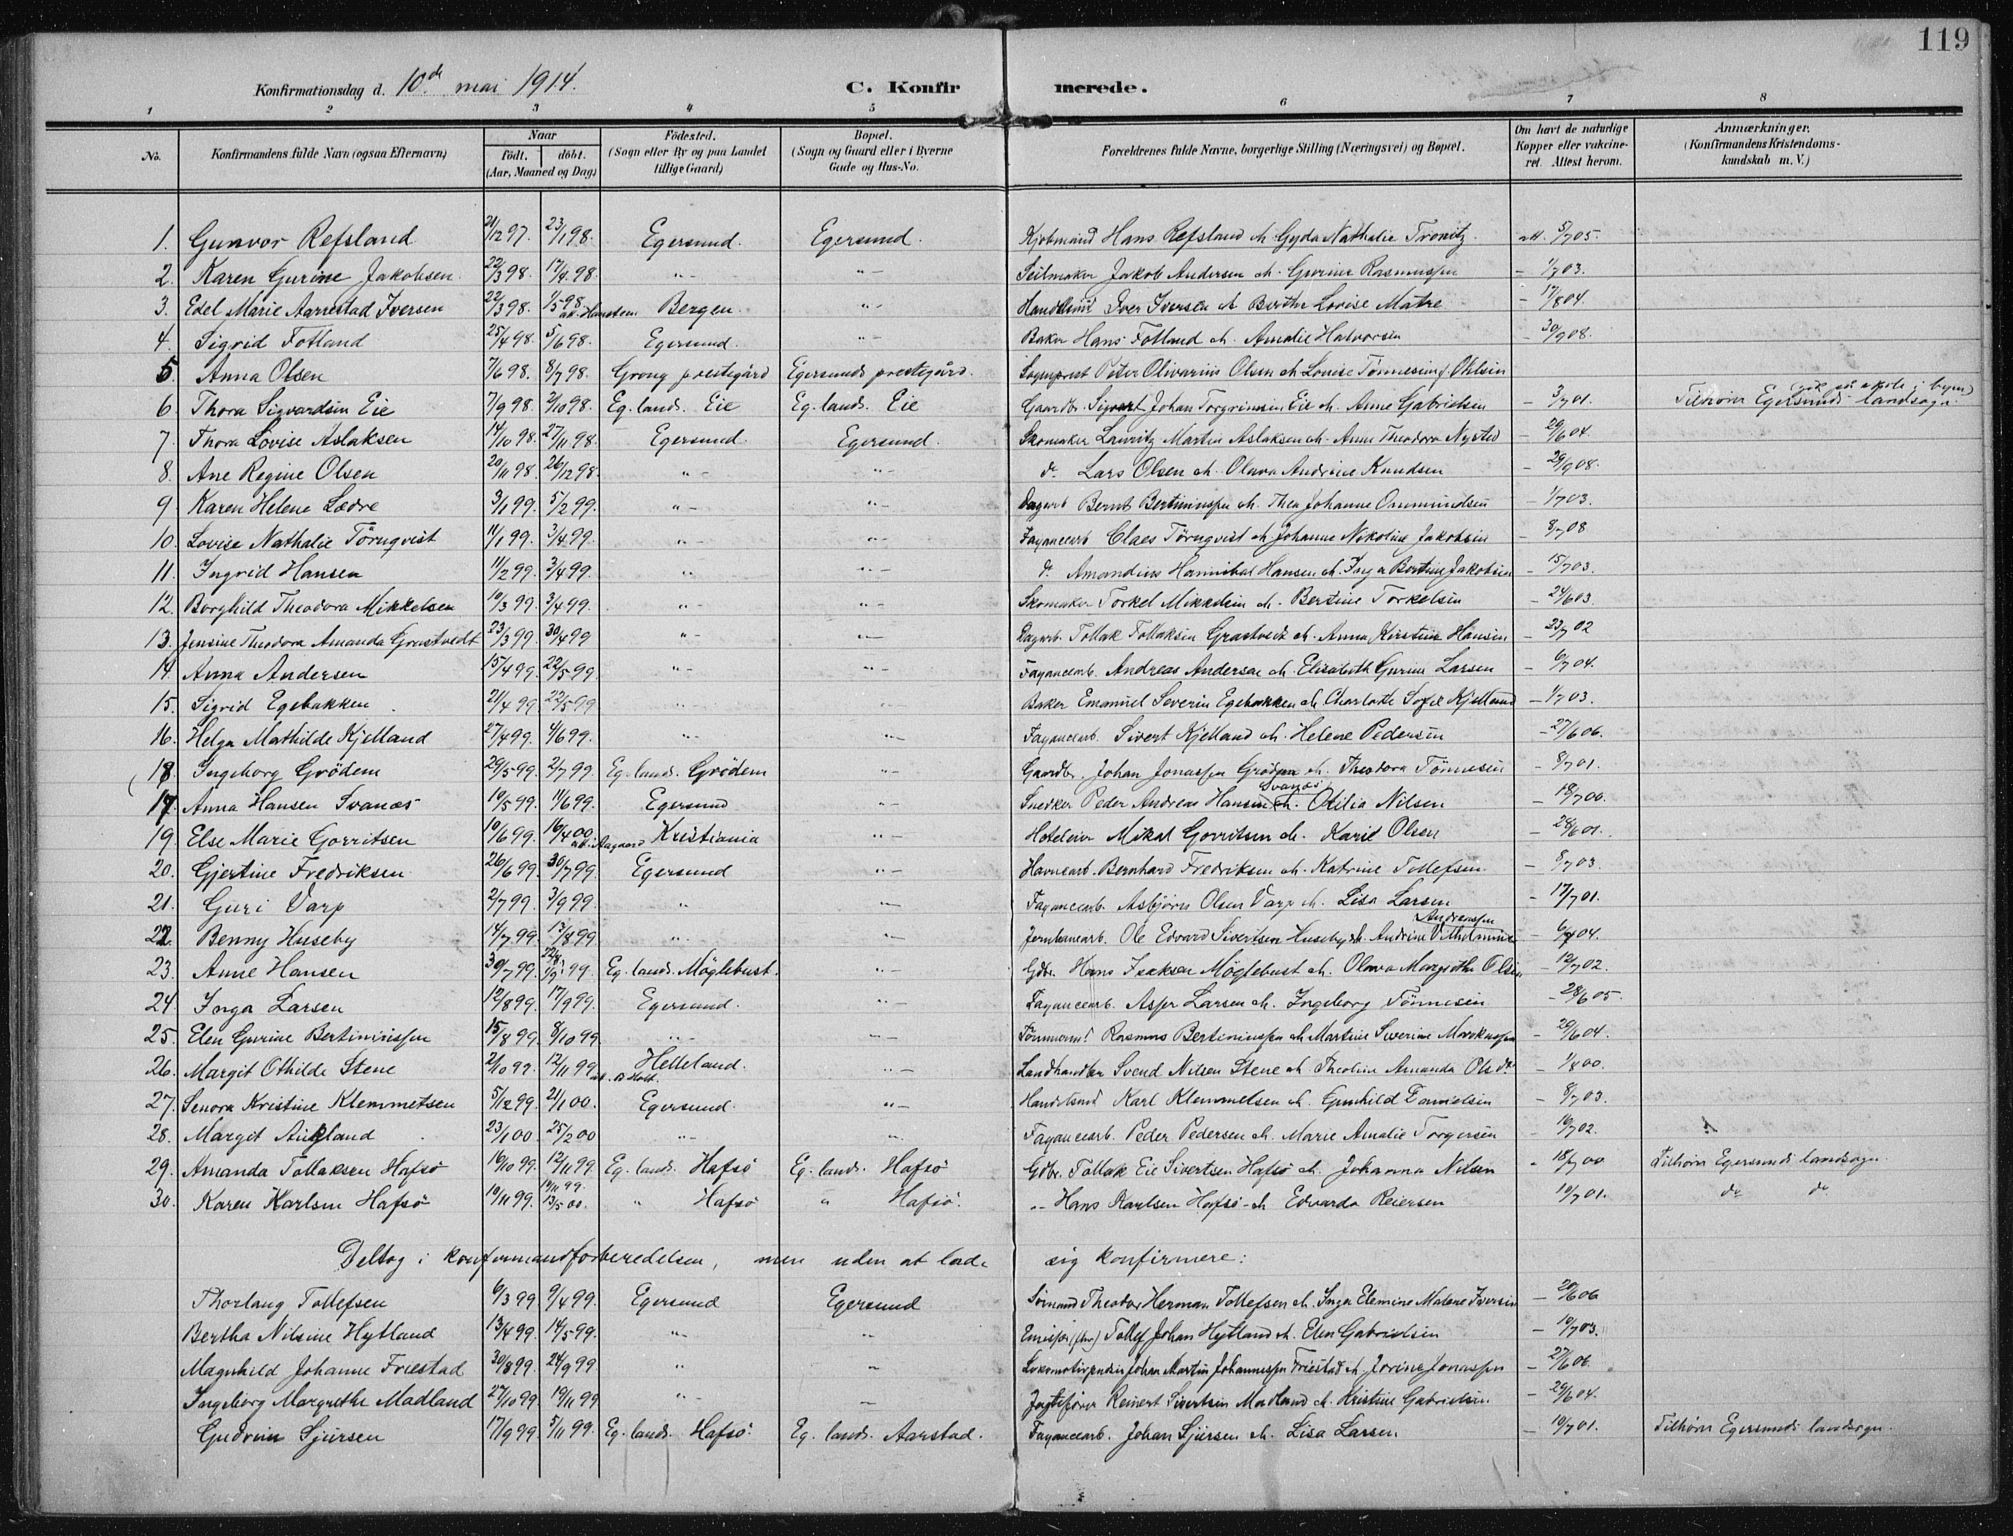 119
Konfirmationsdag d. 10de mai 1914. C. Konfirmerede.
1 2 3 4 5 6 7 8
No. Konfirmandens fulde Navn (ogsaa Efternavn) Naar født, døbt. (Aar, Maaned og Dag) Fødested. (Sogn eller By og paa Landet tillige Gaard) Bopæl. (Sogn og Gaard eller i Byerne Gade og Hus-No. Forældrenes fulde Navne, borgerlige Stilling (Næringsvei) og Bopæl. Om havt de naturlige Kopper eller vaccineret. Attest herom. Anmærkninger. (Konfirmandens Kristendomskundskab m. V.)
1. Gunvor Refsland 21/12 97. 23/1 98. Egersund. Egersund. Kjøbmand Hans Refsland & Gyda Nathalie Tronitz. att. 5/7 05.
2. Karen Gurine Jakobsen 22/3 98. 17/4 98. " - " - Seilmaker Jakob Andersen & Gurine Rasmussen - 1/7 03.
3. Edel Marie Aarrestad Iversen 22/3 98. 1/5 98. Bergen. " - Handelsmd Iver Iversen & Berthe Lovise Matre - 17/8 04.
4. Sigrid Fotland 25/4 98. 5/6 98. Egersund. " - Baker Hans Fotland & Amalie Halvorsen - 30/9 08.
5. Anna Olsen 7/6 98. 8/7 98. Grong prestegård Egersunds prestegård. Sogneprest Peter Olivarius Olsen & Louise Tønnesine f. Ohlsin
6. Thora Sigvardsen Eie 7/9 98. 2/10 98. Eg. lands. Eie Eg. lands. Eie Gaardbr. Sigvart Johan Torgrimsen Eie & Anne Gabrielsen - 3/7 01. Tilhører Egersunds landsogn. (gik på skole i byen)
7. Thora Lovise Aslaksen 14/10 98. 27/11 98. Egersund. Egersund. Skomaker Lauritz Martin Aslaksen & Anne Theodora Nysted - 29/6 04.
8. Ane Regine Olsen 20/11 98. 26/12 98. " - " - do Lars Olsen & Olava Andrine Knudsen - 29/9 08.
9. Karen Helene Lædre 3/1 99. 5/2 99. " - " - Dagarb. Bernt Bertiniussen & Thea Johanne Oanmundsen - 1/7 03.
10. Lovise Nathalie Törnqvist 11/1 99. 3/4 99. " - " - Fayancearb. Claes Törnqvist & Johanne Nikoline Jakobsen - 8/7 08
11. Ingrid Hansen 11/2 99. 3/4 99. " - " - do Amandius Hannibal Hansen & Inga Bertine Jakobsen - 15/7 03.
12. Borghild Theodora Mikkelsen 10/3 99. 3/4 99. " - " - Skomaker Torkel Mikkelsen & Bertine Torkelsen - 24/6 03.
13. Jensine Theodora Amanda Grastvedt 23/3 99. 30/4 99 " - " - Dagarb. Tollak Tollaksen Grastvedt & Anna Kirstine Hansen - 23/7 02
14. Anna Andersen 15/4 99. 22/5 99. " - " - Fayancearb. Andreas Andersen & Elisabeth Gurine Larsen - 6/7 04.
15. Sigrid Egebakken 21/4 99. 22/5 99 " - " - Baker Emanuel Severin Egebakken & Charlotte Sofie Kjelland - 1/7 03.
16. Helga Mathilde Kjelland 27/4 99. 4/6 99. " - " - Fayancearb. Sivert Kjelland & Helene Pedersen - 27/6 06.
(18. Ingeborg Grödem 29/5 99. 2/7 99. Eg. lands. Grödem " - Gaardbr. Johan Jonassen Grödem & Theodora Tönnesen - 8/7 01.
17. Anna Hansen Svanæs 10/5 99. 11/6 99. Egersund " - Snedker Peder Andreas Hansen Svanæs & Otilia Nilsen - 18/7 00.
19. Else Marie Gorritsen 10/6 99. 16/4 00. Kristiania " - Hoteleier Mikal Gorritsen & Karie Olsen - 28/6 01.
20. Gjertine Fredriksen 26/6 99. 30/7 99. Egersund " - Havnearb. Bernhard Fredriksen & Katrine Tollefsen. - 8/7 03.
21. Guri Varp 2/7 99. 3/9 99. " - Fayancearb. Asbjörn Olsen Varp & Lisa Larsen - 17/7 01.
22. Benny Huseby 14/7 99. 13/8 99. " - " - Jernbanearb. Ole Edvard Sivertsen Huseby & Andrine Vilhelmine Andreassen - 6/7 04.
23. Anne Hansen 30/7 99. Eg. lands. Möglebust. " - Gdbr. Hans Isaksen Möglebust & Olava Margrethe Olsen - 12/7 02.
24. Inga Larsen 12/8 99. 17/9 99. Egersund. " - Fayancearb. Asser Larsen & Ingeborg Tönnesen - 28/6 05.
25. Elen Gurine Bertiniussen 15/8 99. 8/10 99. " - " - Tömmermd Rasmus Bertiniussen & Martine Severine Markussen - 29/6 04.
26. Margit Othilde Stene 2/10 99. 12/11 99. Helleland. " - Landhandler Svend Nilsen Stene & Theoline Amanda Olsdr - 1/8 00.
27. Senora Kristine Klemmetsen 5/12 99. 21/1 00. Egersund. " - Handelsmd Karl Klemmetsen & Gunhild Danielsen - 8/7 03.
28. Margit Aurland 23/1 00. 25/2 00 " - " - Fayancearb. Peder Pedersen & Marie Amalie Torgersen - 16/7 02.
29. Amanda Tollaksen Hafsö 16/10 99. 12/11 99. Eg. lands. Hafsö Eg. lands. Hafsö Gdbr. Tollak Eie Sivertsen Hafsö & Johanna Nilsen " 18/7 00 Tilhører Egersunds landsogn.
30. Karen Karlsen Hafsö 10/11 99. 19/11 99. 13/5 00. " Hafsö " Hafsö. " - Hans Karlsen Hafsö & Edvarda Reiersen 10/7 01. do do
Deltog i konfirmandforberedelsen, men uden at lade sig konfirmere:
Thorlaug Tollefsen 6/3 99 9/4 99. Egersund Egersund Sömand Theodor Herman Tollefsen & Inga Elemine Malene Iversen - 20/6 06
Bertha Nilsine Hytland 13/4 99. 14/5 99. " - " - Emissær Tollef Johan Hytland & Elen Gabrielsen - 10/7 03.
Magnhild Johanne Friestad 30/8 99. 24/9 99 " - " - Lokomotivpudser Johan Martin Johannessen Friestad & Jorine Jonassen - 27/6 06.
Ingeborg Margrethe Madland 27/10 99. 19/11 99. " - " - Jagtefører Reinert Sivertsen Madland & Kristine Gabrielsen. - 29/6 04.
Gudrun Sjursen 17/9 99. 5/11 99. Eg. lands. Hafsö. Eg. lands. Aarstad. Fayancearb. Johan Sjursen & Lisa Larsen - 10/7 01. Tilhører Egersunds landsogn.